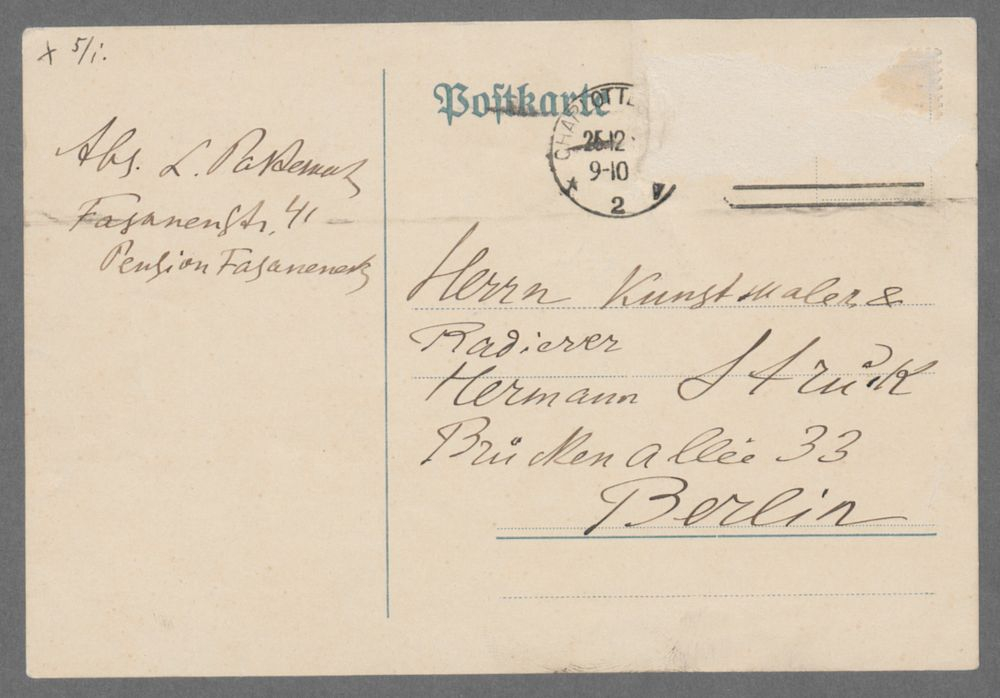 x 5/i.
Abs. L. Pasternak
Fasanenstr. 41
Pension Fasaneneck
Postkarte
CHARLOTTE
25.12
9-10 V
2
Herrn Kunstmaler &
Radierer
Hermann Struck
Brückenallée 33
Berlin